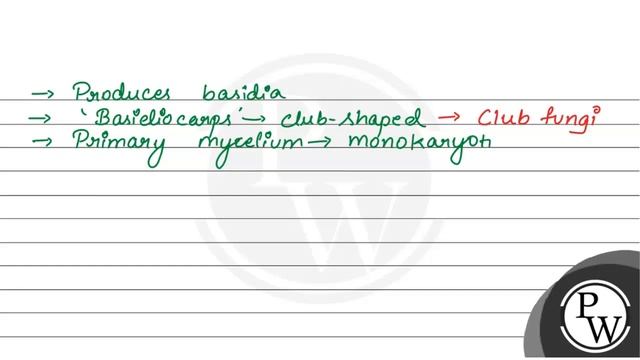 → Produces basidia
→ 'Basidiocarps' → club-shaped → Club fungi
→ Primary mycelium → monokaryot
PW
PW